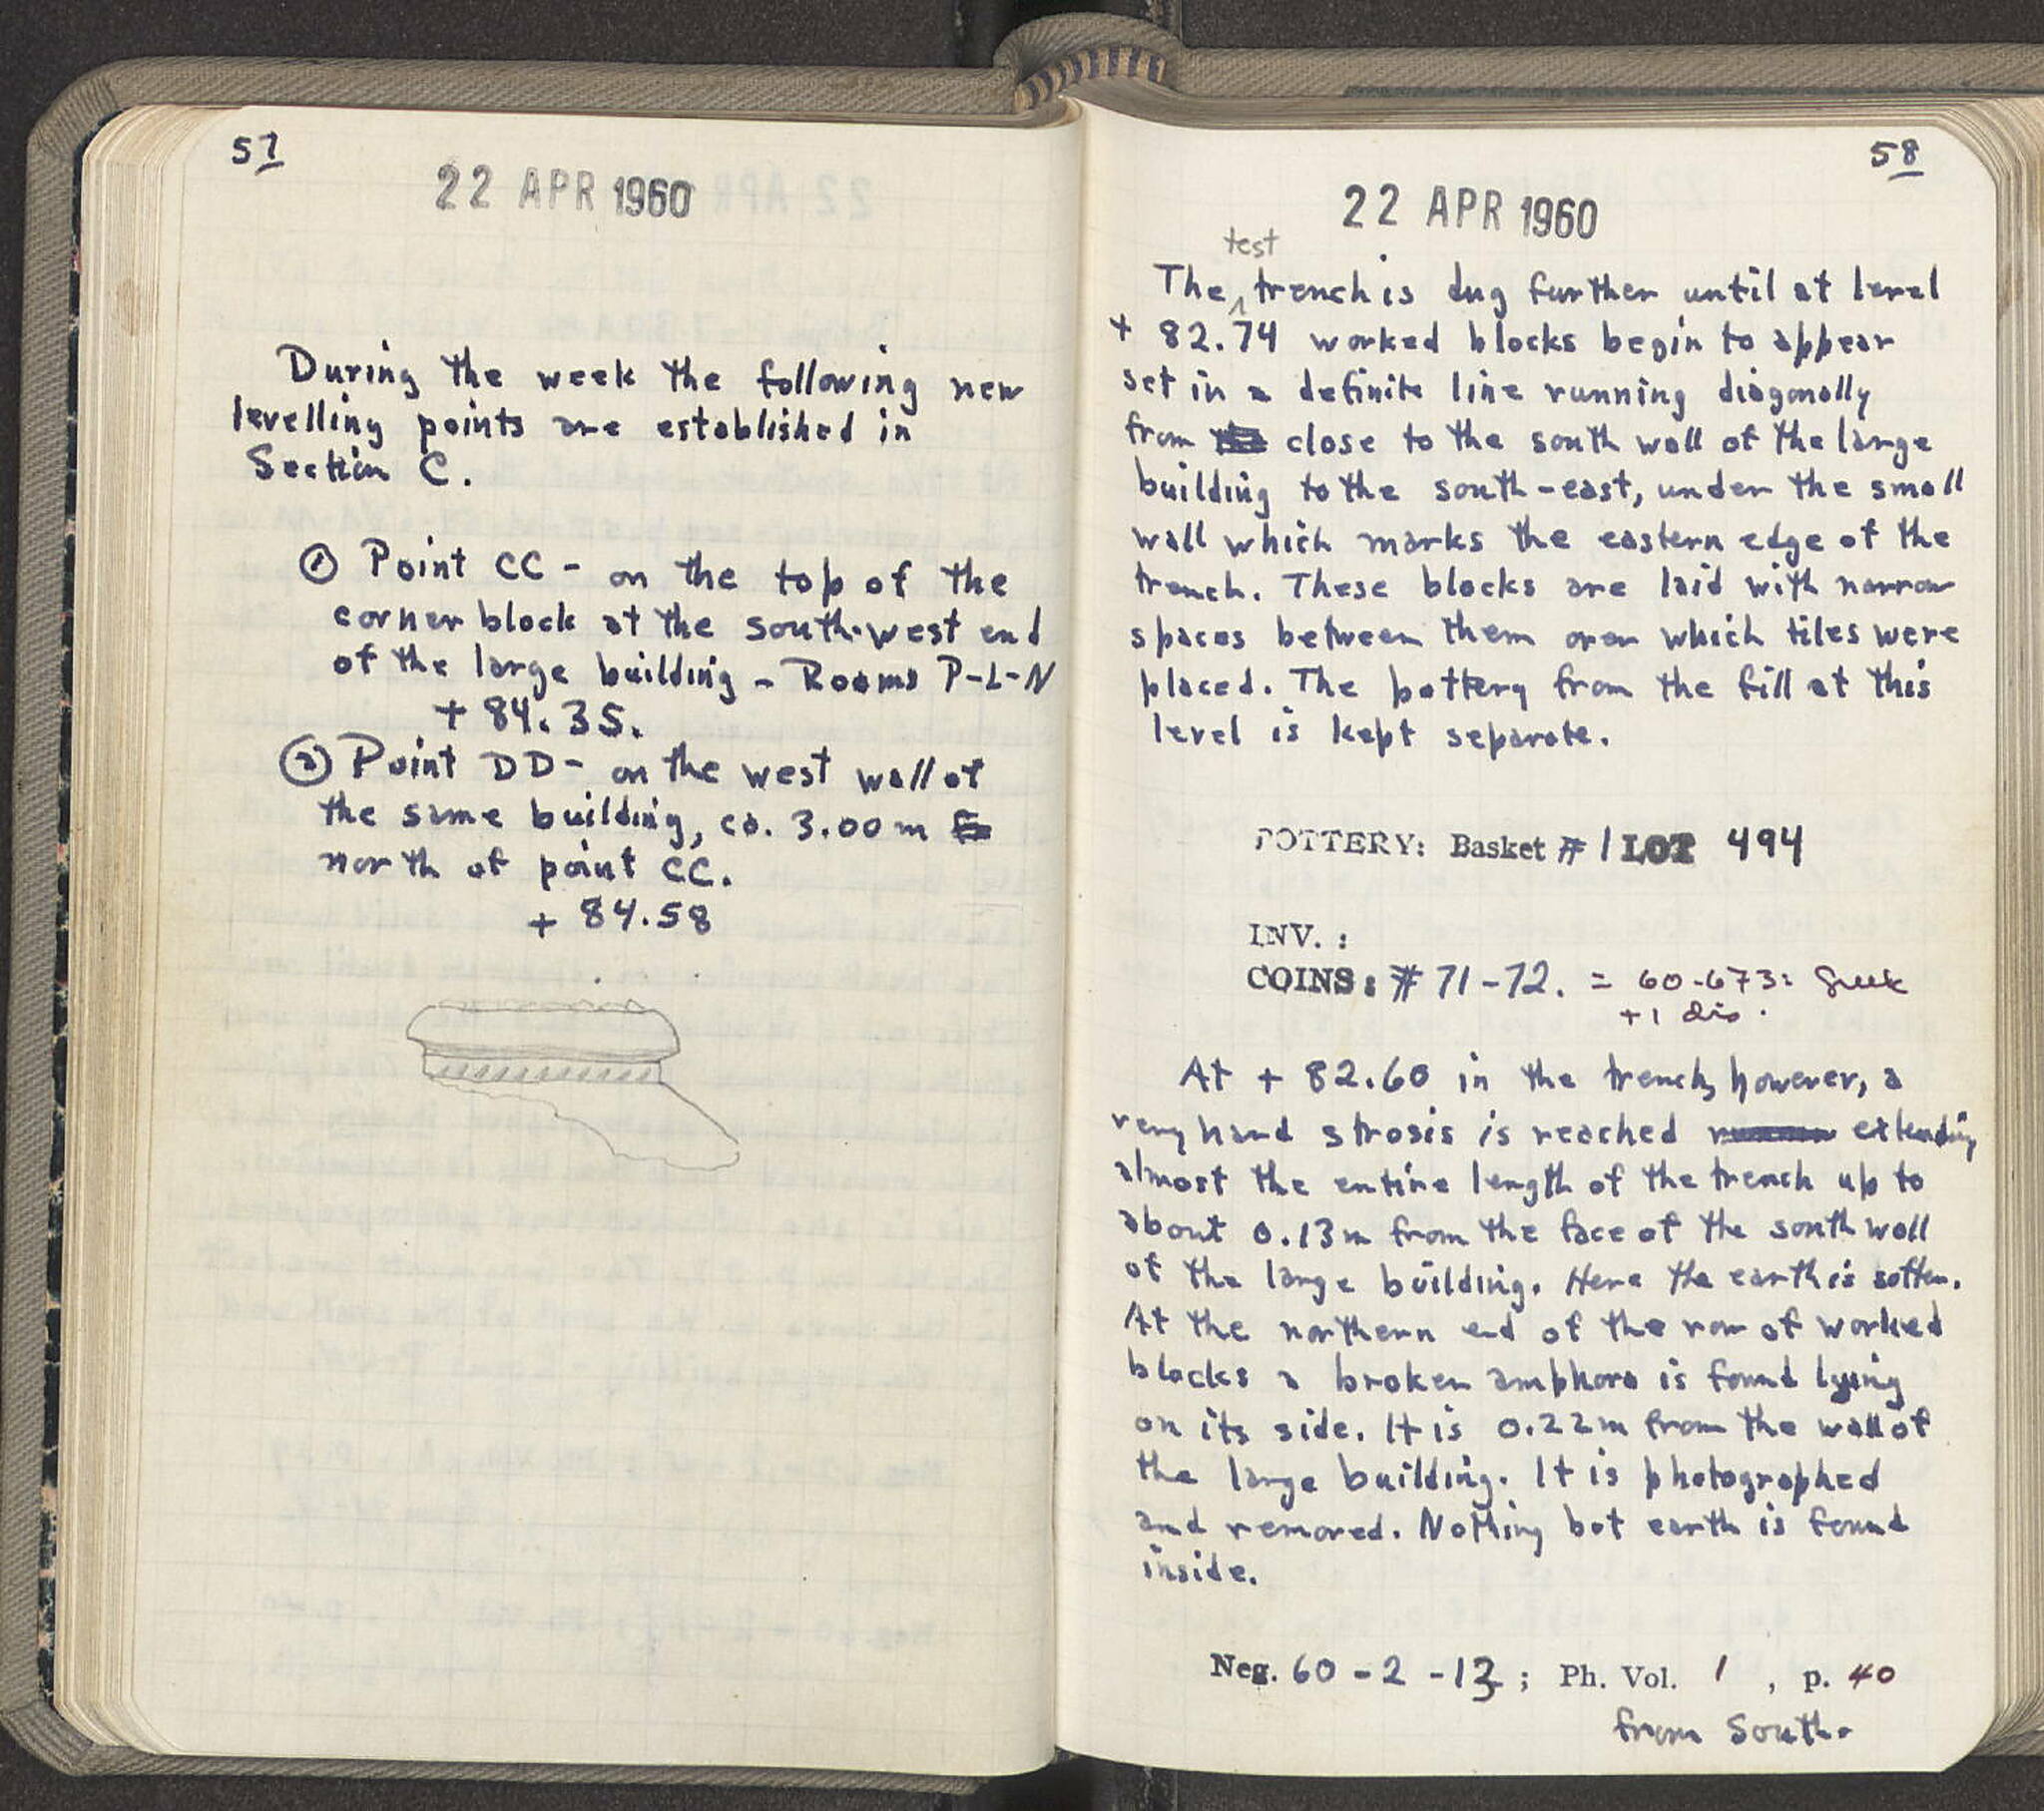 57
22 APR 1960
During the week the following new
levelling points are established in
Section C.
① Point CC - on the top of the
corner block at the south-west end
of the large building - Rooms P-L-N
+ 84.35.
② Point DD - on the west wall of
the same building, ca. 3.00 m
north of point CC.
+ 84.58
58
22 APR 1960
test
The trench is dug further until at level
+ 82.74 worked blocks begin to appear
set in a definite line running diagonally
from close to the south wall of the large
building to the south-east, under the small
wall which marks the eastern edge of the
trench. These blocks are laid with narrow
spaces between them over which tiles were
placed. The pottery from the fill at this
level is kept separate.
POTTERY: Basket # 1 LOT 494
INV. :
COINS: # 71-72. = 60-673: Greek
+1 dis.
At + 82.60 in the trench, however, a
very hard strosis is reached extending
almost the entire length of the trench up to
about 0.13m from the face of the south wall
of the large building. Here the earth is softer.
At the northern end of the row of worked
blocks a broken amphora is found lying
on its side. It is 0.22m from the wall of
the large building. It is photographed
and removed. Nothing but earth is found
inside.
Neg. 60 - 2 - 13 ; Ph. Vol. 1 , p. 40
from South.